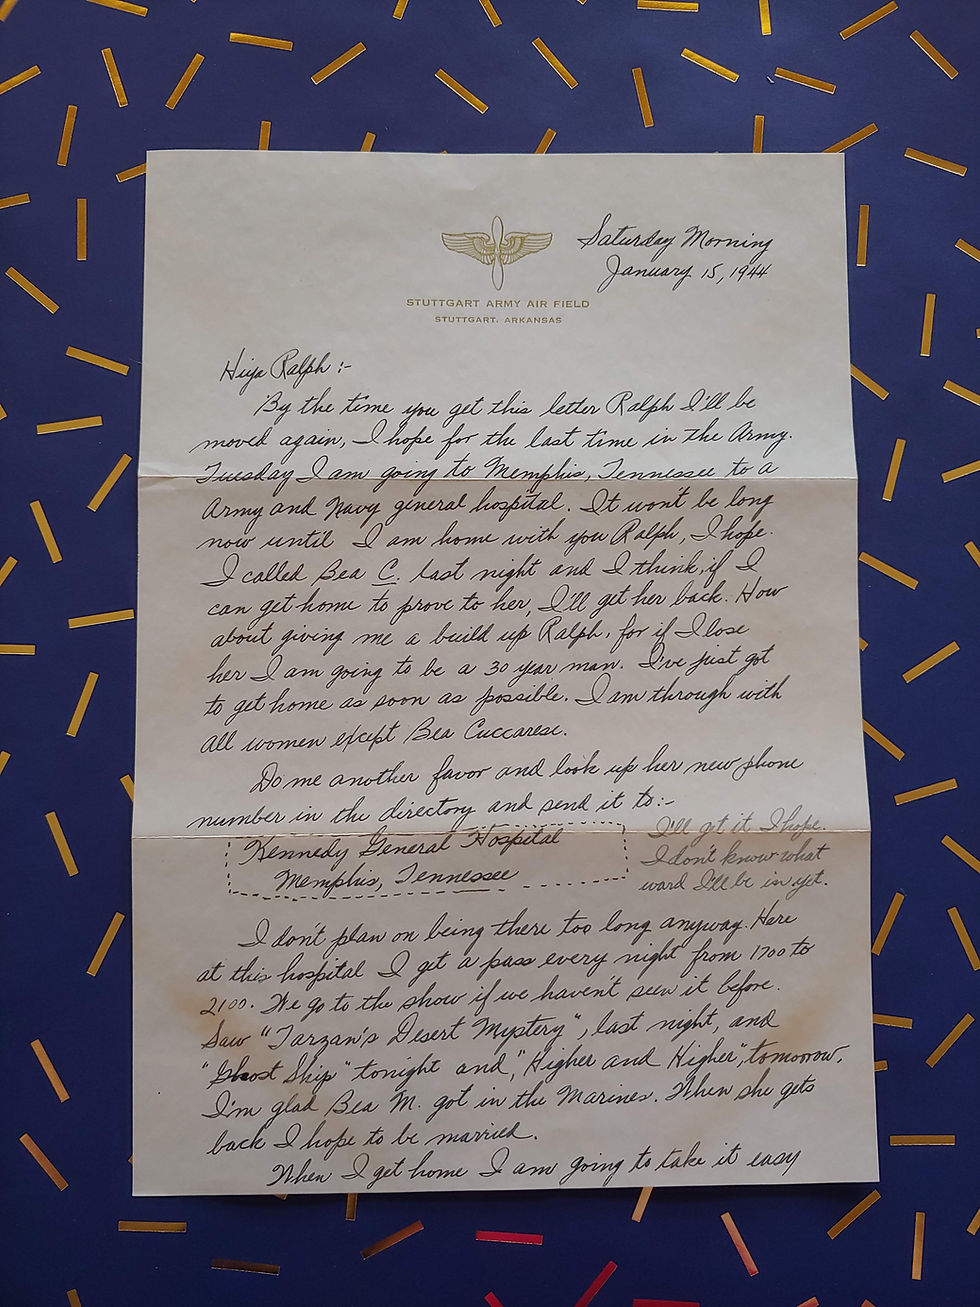 Saturday Morning
January 15, 1944
STUTTGART ARMY AIR FIELD
STUTTGART, ARKANSAS
Hiya Ralph :-
By the time you get this letter Ralph I'll be
moved again, I hope for the last time in the Army.
Tuesday I am going to Memphis, Tennessee to a
Army and Navy general hospital. It won't be long
now until I am home with you Ralph, I hope.
I called Bea C. last night and I think, if I
can get home to prove to her, I'll get her back. How
about giving me a build up Ralph, for if I lose
her I am going to be a 30 year man. I've just got
to get home as soon as possible. I am through with
all women except Bea Cuccarese.
Do me another favor and look up her new phone
number in the directory and send it to:-
Kennedy General Hospital
Memphis, Tennessee
I'll get it I hope.
I don't know what
ward I'll be in yet.
I don't plan on being there too long anyway. Here
at this hospital I get a pass every night from 1700 to
2100. We go to the show if we haven't seen it before.
Saw "Tarzan's Desert Mystery", last night, and
"Ghost Ship" tonight and, "Higher and Higher", tomorrow.
I'm glad Bea M. got in the Marines. When she gets
back I hope to be married.
When I get home I am going to take it easy